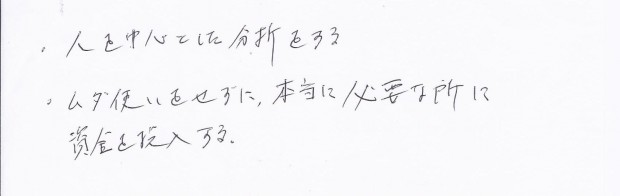 ・人を中心とした分析をする
・ムダ使いをせずに、本当に必要な所に
資金を投入する。